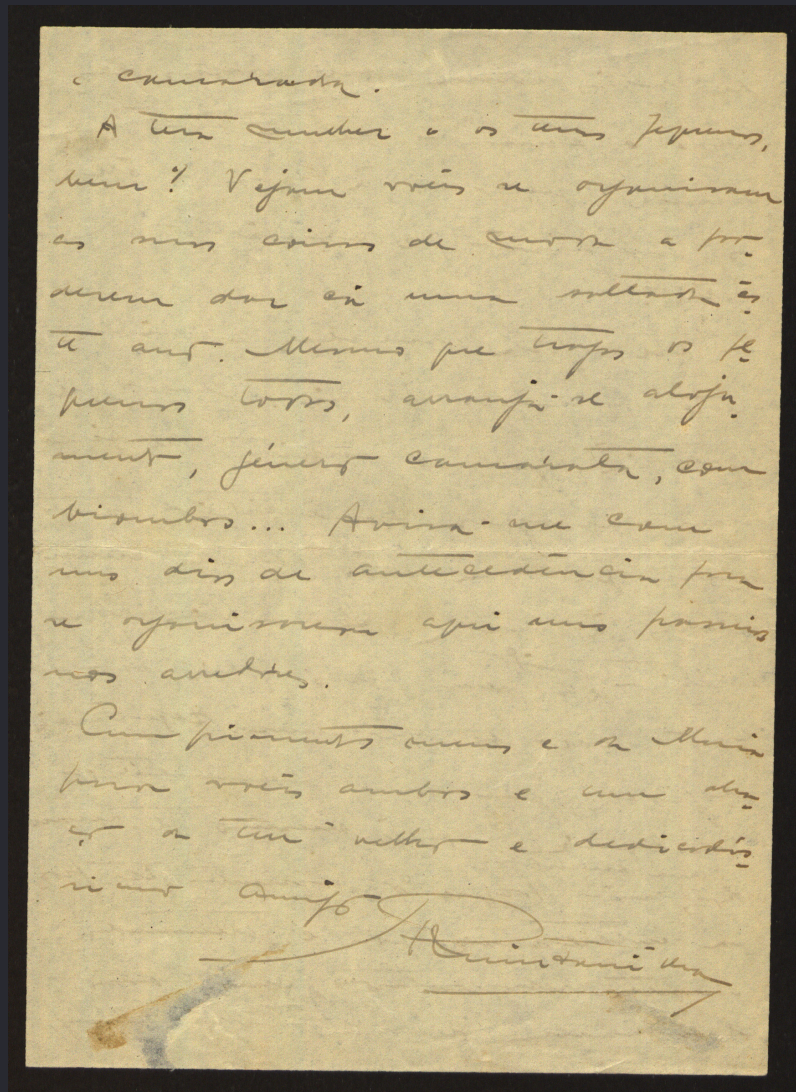 e camarada.
A tua mulher e os teus pequenos,
bem? Vejam vocês se organisam
as suas coisas de modo a po-
derem dar cá uma saltada ês-
te ano. Mesmo que tragas os pe-
quenos todos, arranja-se aloja-
mento, género camarata, com
biombos... Avisa-me com
uns dias de antecedência para
se organisarem aqui uns passeios
nos arredores.
Cumprimentos meus e da Maria
para vocês ambos e um abra-
ço do teu velho e dedicadís-
simo amigo
Quintanilha